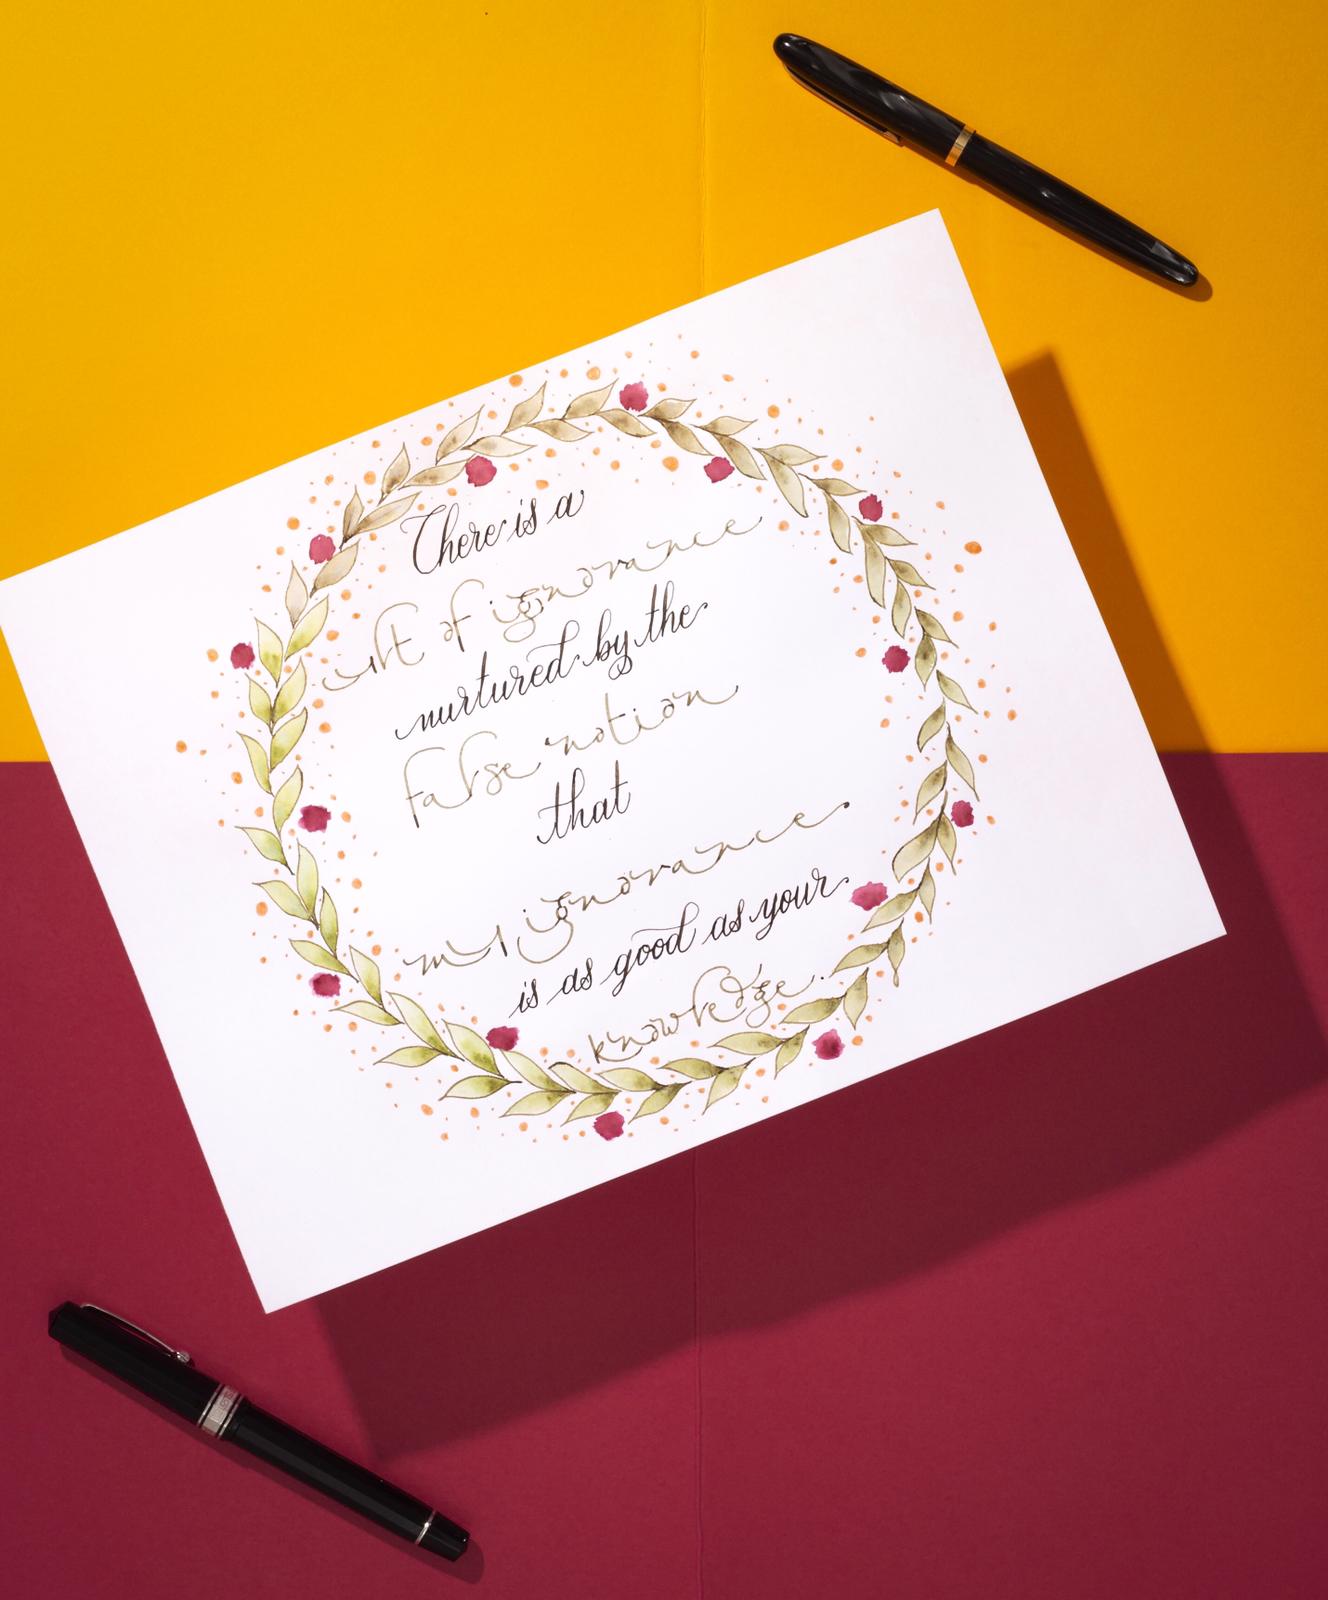 There is a
cult of ignorance
nurtured by the
false notion
that
my ignorance
is as good as your
knowledge.